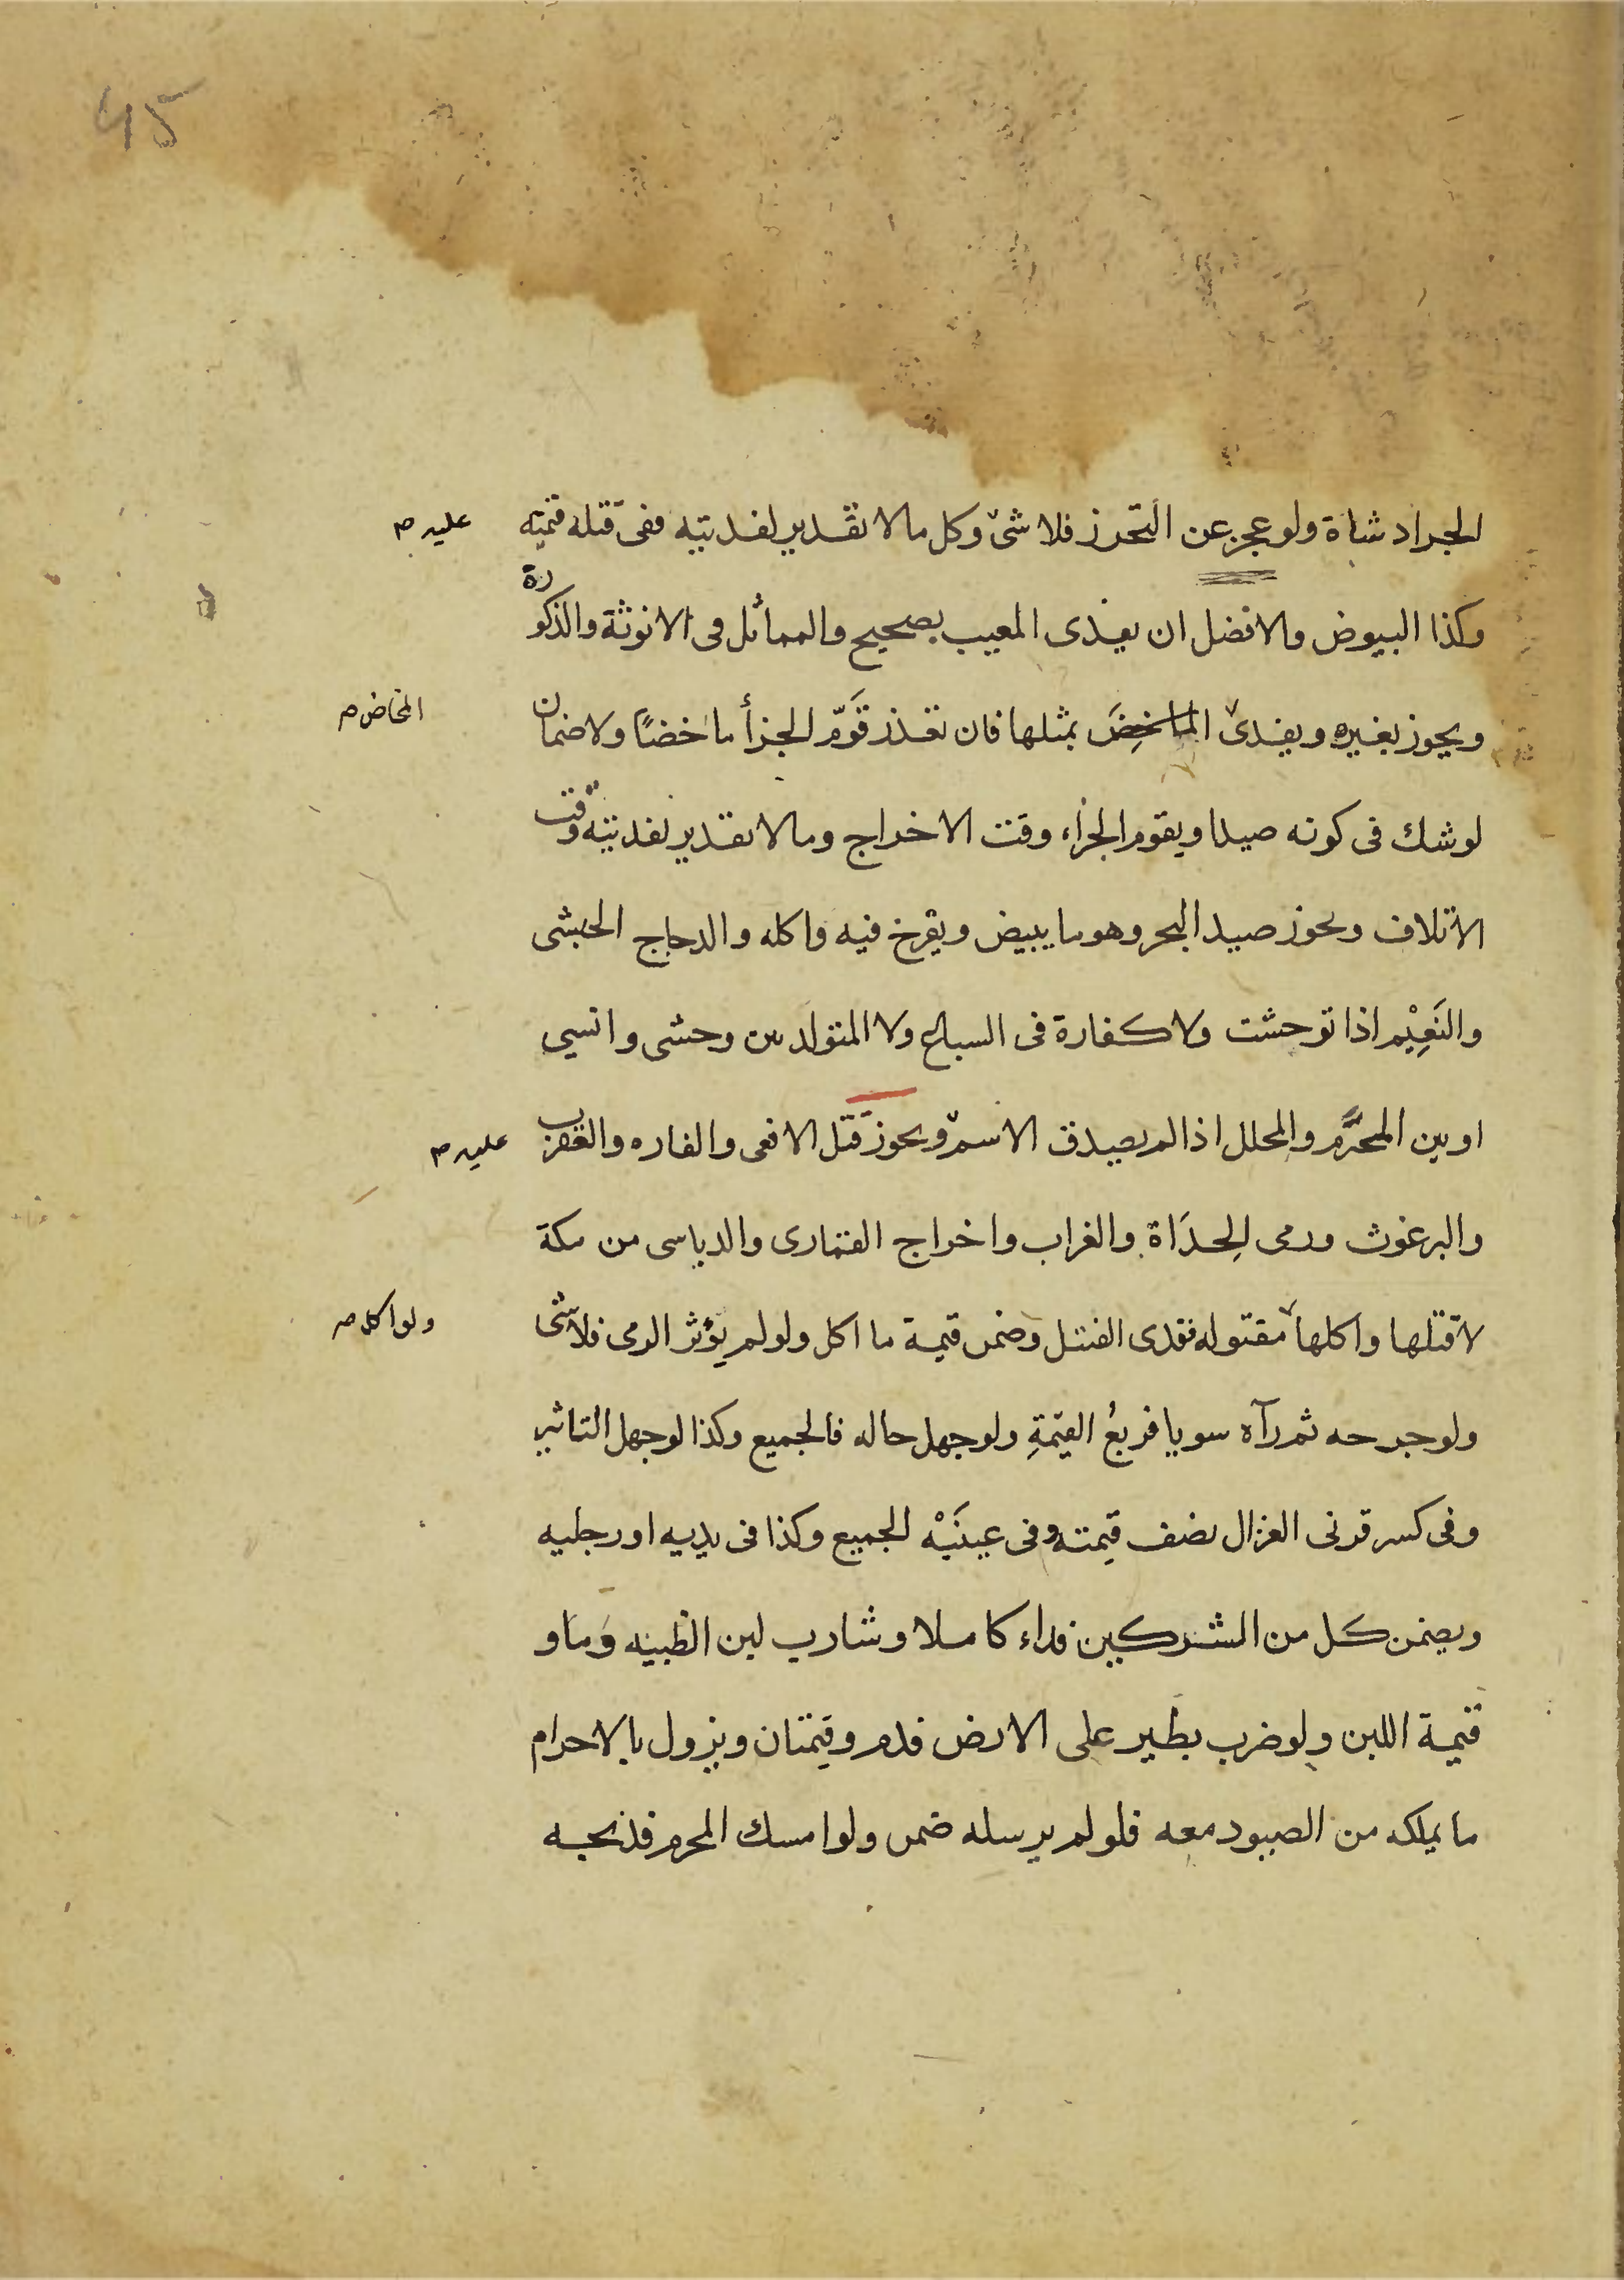 45
الجراد شاة ولو عجز عن التحرز فلا شئ وكل ما لا تقدير لفديته ففى قتله قيمته
عليه م
وكذا البيوض والافضل ان يفدى المعيب بصحيح والمماثل فى الانوثة والذكورة
ويجوز بغيره ويفدى الماخض بمثلها فان تعذر قَوّم الجزأ ماخضًا ولا ضمان
المخاض م
لو شك فى كونه صيدا ويقوم الجزاء وقت الاخراج وما لا تقدير لفديته وقت
الاتلاف ويجوز صيد البحر وهو ما يبيض ويفرخ فيه واكله والدجاج الحبشى
والنَعِيْم اذا توحشت ولا كفارة فى السباع ولا المتولد بين وحشى وانسي
او بين المحرَّم والمحلل اذا لم يصدق الاسم ويجوز قتل الافعى والفاره والعقرب
عليه م
والبرغوث ورمى الِحدَاة والغراب واخراج القمارى والدباسى من مكة
لا قتلها واكلها مقتوله ففدى القتل وضمن قيمة ما اكل ولو لم يؤثر الرمى فلا شئ
ولو اكل م
ولو جرحه ثم رآه سويا فربعُ القيمَةِ ولو جهل حاله فالجميع وكذا لو جهل التاثير
وفى كسر قرنى الغزال نصف قيمته وفى عينَيْه الجميع وكذا فى يديه او رجليه
ويضمن كل من المشركين فداء كاملا وشارب لبن الظبيه دَمًا و
قيمة اللبن ولو ضرب بطير على الارض فدم وقيمتان ويزول بالاحرام
ما يملكه من الصيود معه فلو لم يرسله ضمن ولو امسك المحرم فذبحه